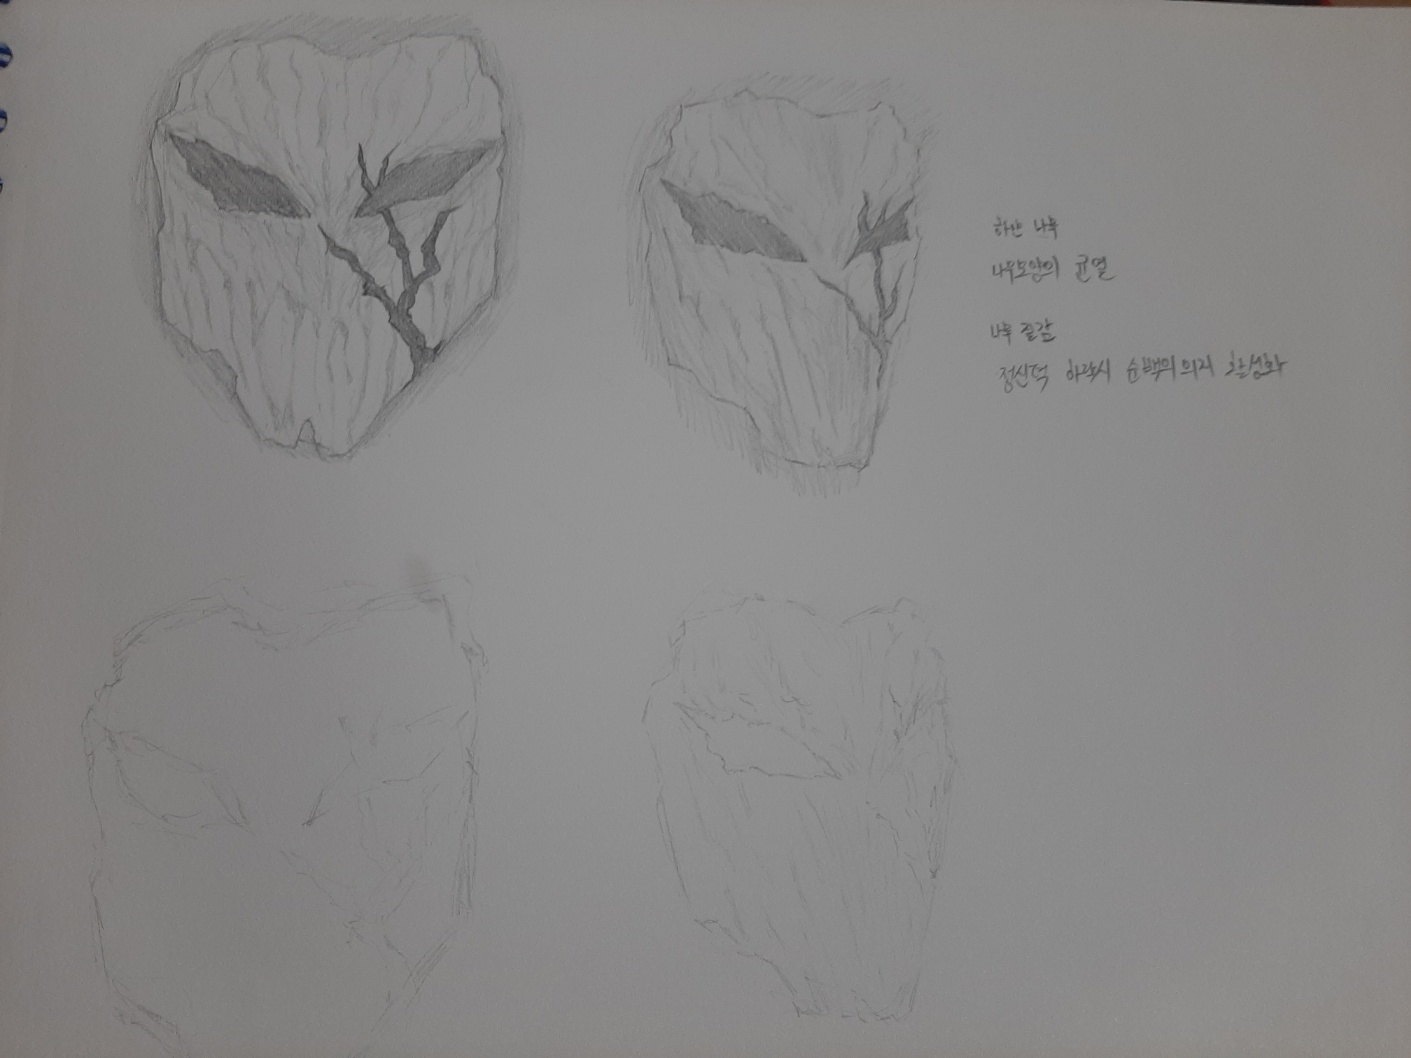 하얀 나무
나무모양의 균열
나무 질감
정신력 하락시 순백의 의지 활성화